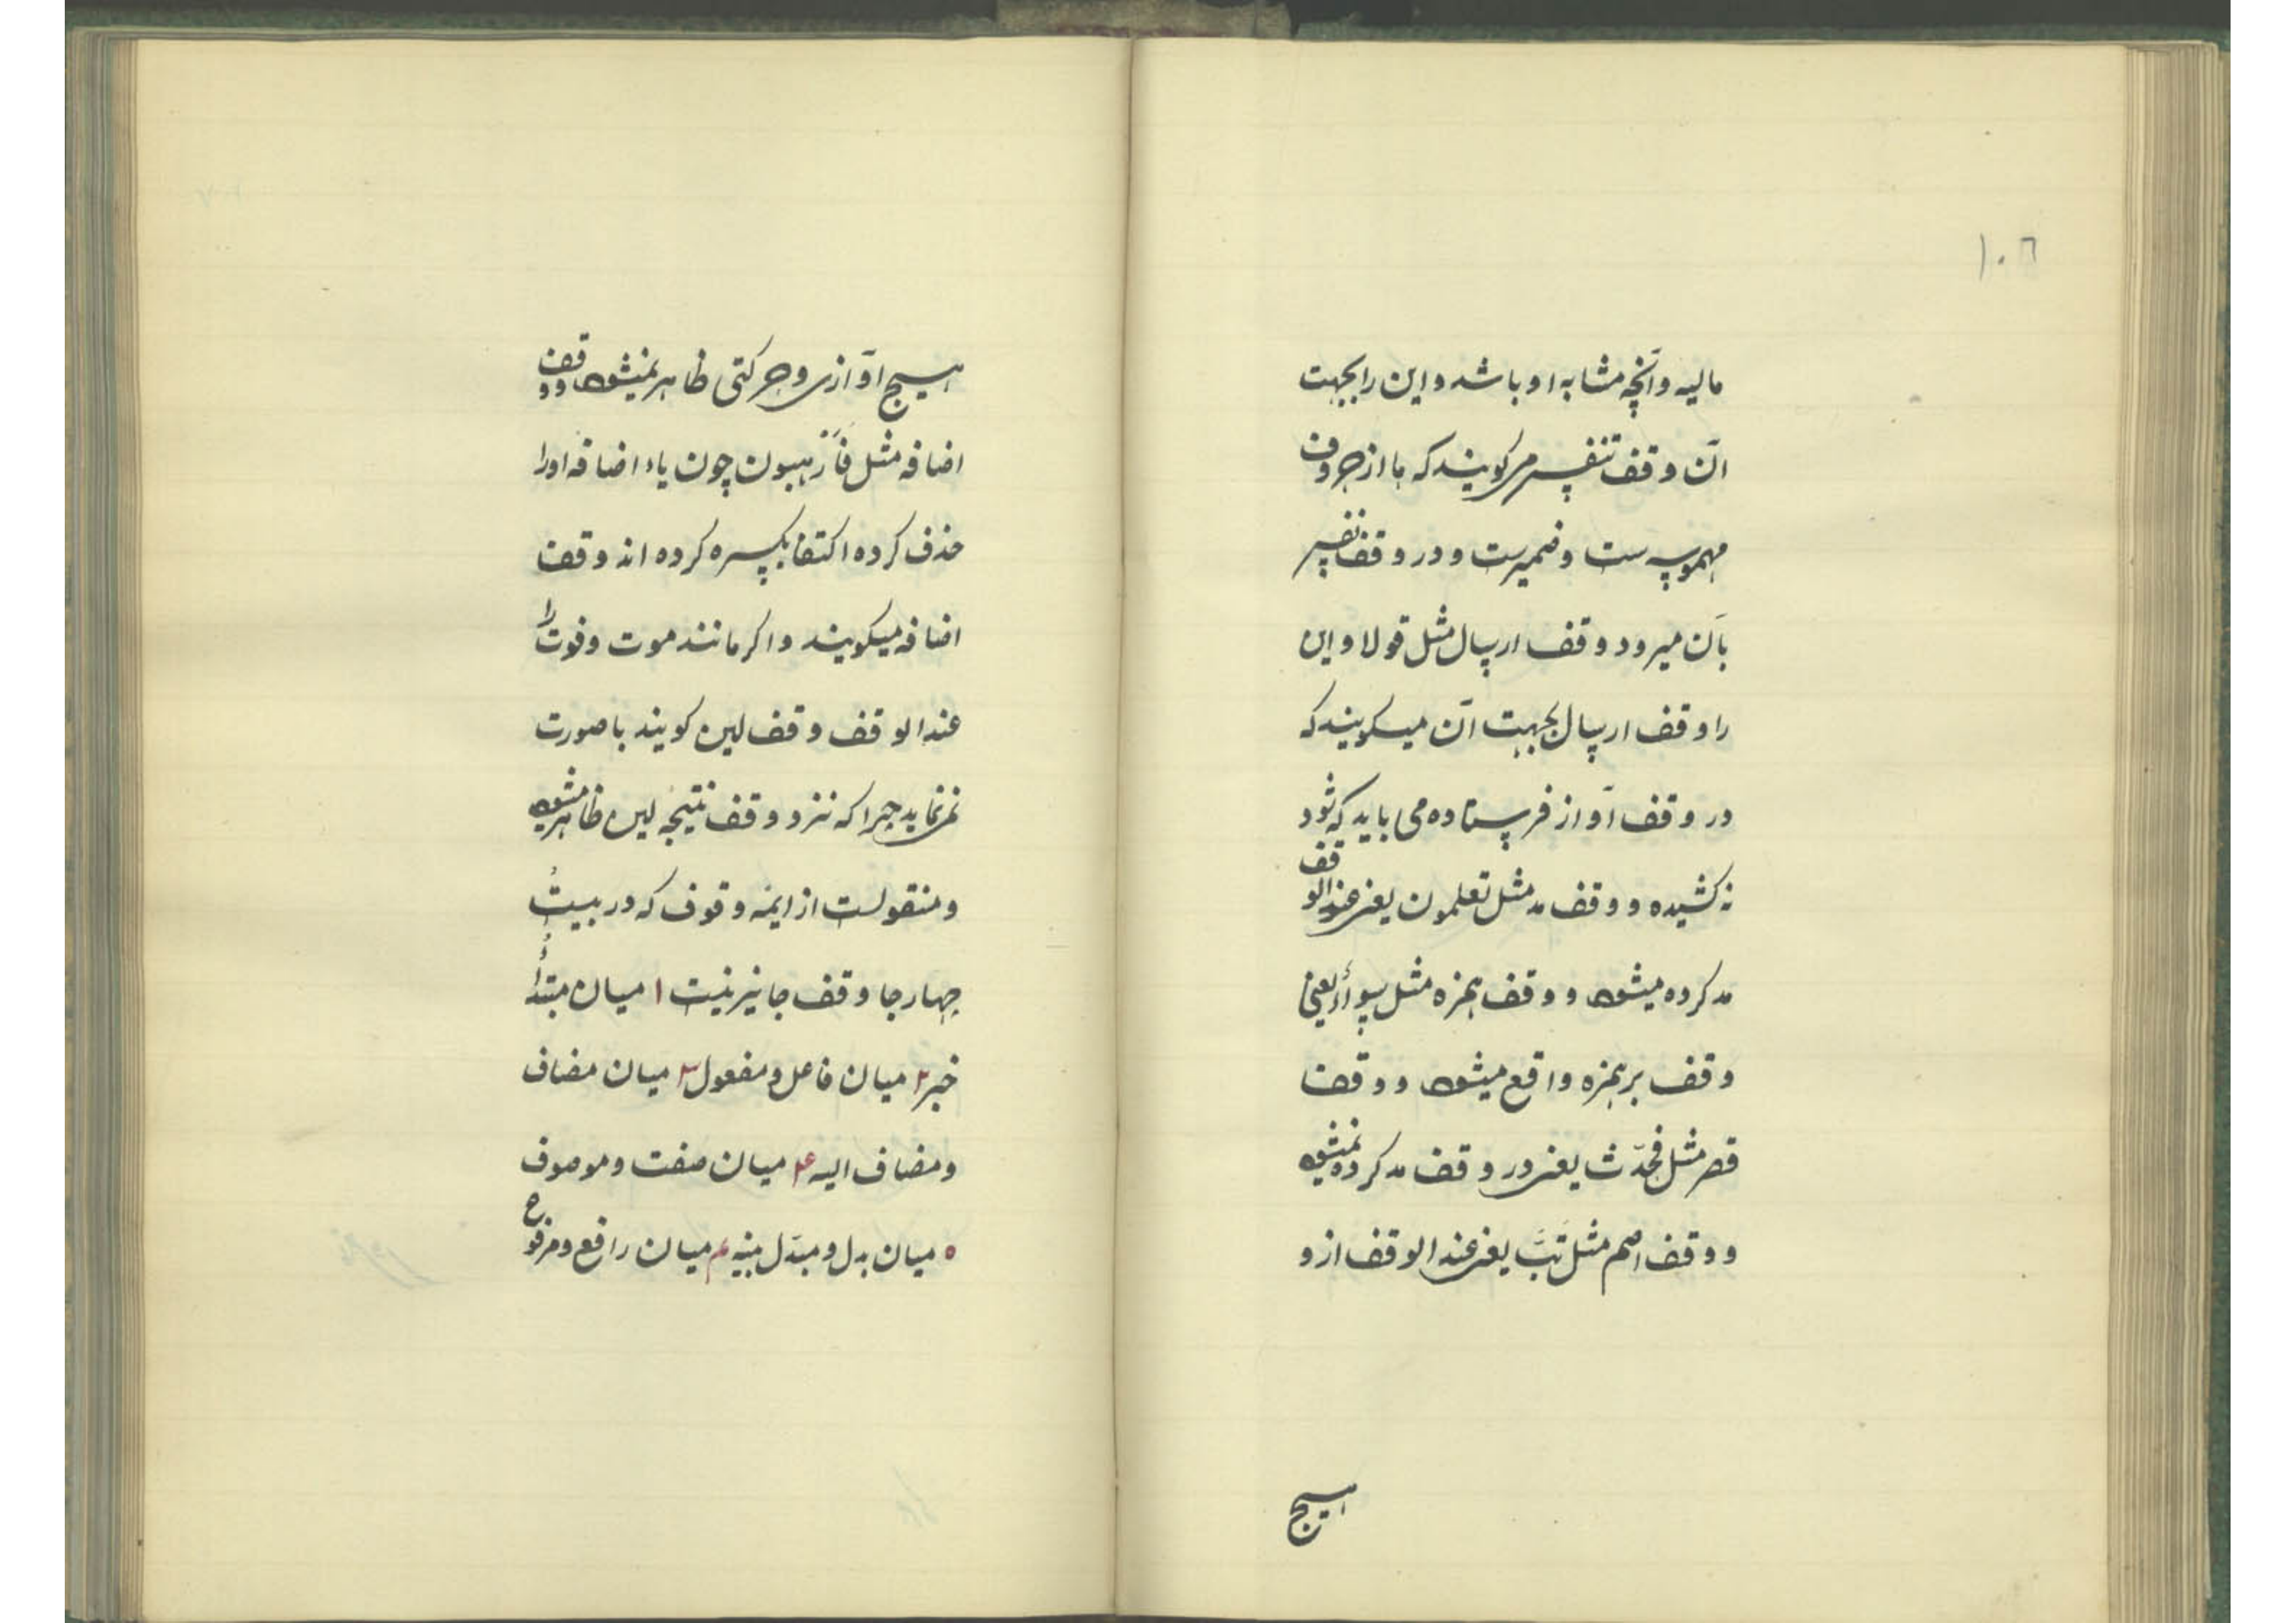 ١٠٦
مالیه وآنچه مشابه او باشد و این را بجهت
آن وقف تنفس میکویند که ها از حروف
مهموسه ست و ضمیرست و در وقف نفس
بآن میرود و وقف ارسال مثل قولا و این
را وقف ارسال بجهت آن میکویند که
در وقف آواز فرستاده می باید که شود
نه کشیده و وقف مد مثل تعلمون یعنی عندالوقف
مد کرده میشود و وقف همزه مثل سواءٌ یعنی
وقف بر همزه واقع میشود و وقف
قصر مثل فحدّث یعنی در وقف مد کرده نمیشود
و وقف اصم مثل تبَّ یعنی عند الوقف ازو
هیچ
هیچ آوازی و حرکتی ظاهر نمیشود و وقف
اضافه مثل فارهبون چون یاء اضافه او را
حذف کرده اکتفا بکسره کرده اند وقف
اضافه میکویند و اکر مانند موت و فوت را
عند الوقف وقف لین کویند با صورت
نمی نماید چرا که نزد وقف نتیجه لین ظاهر میشود
و منقولست از ایمه وقوف که در بیست
چهار جا وقف جایز نیست ١ میان مبتدأ
خبر ٢ میان فاعل و مفعول ٣ میان مضاف
و مضاف الیه ۴ میان صفت و موصوف
٥ میان بدل و مبدّل منه ۶ میان رافع و مرفوع